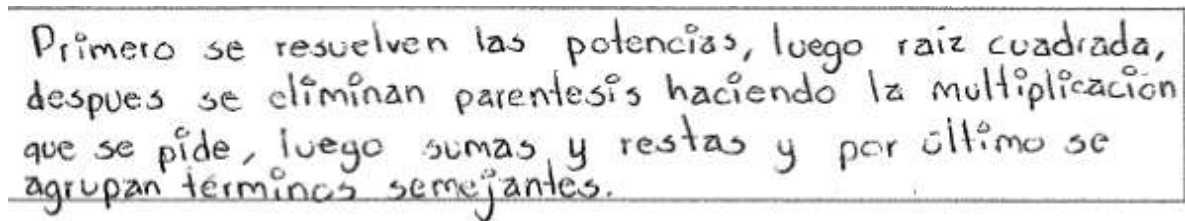 Primero se resuelven las potencias, luego raiz cuadrada,
despues se eliminan parentesis haciendo la multiplicación
que se pide, luego sumas y restas y por último se
agrupan términos semejantes.